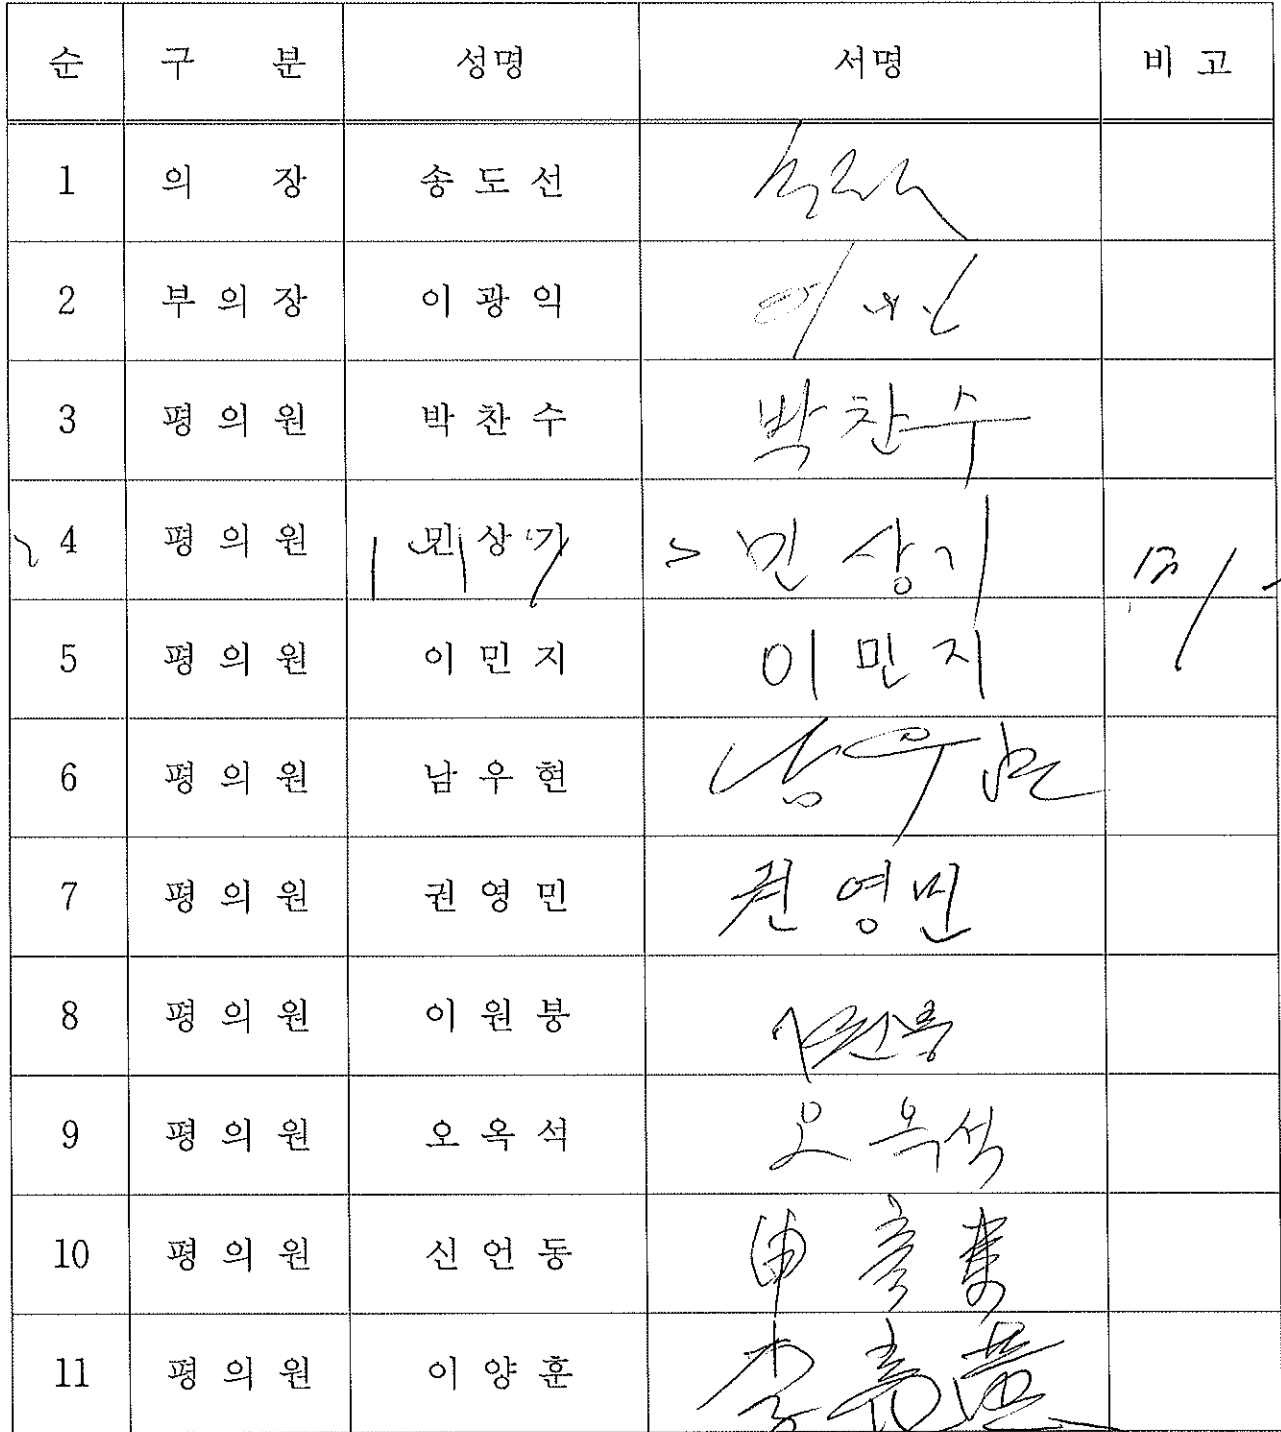 순 구 분 성명 서명 비 고
1 의 장 송 도 선
2 부 의 장 이 광 익
3 평 의 원 박 찬 수 박찬수
4 평 의 원 민 상 기 민 상 기
5 평 의 원 이 민 지 이 민 지
6 평 의 원 남 우 현 남우현
7 평 의 원 권 영 민 권 영 민
8 평 의 원 이 원 붕 이원붕
9 평 의 원 오 옥 석 오 옥석
10 평 의 원 신 언 동 申 彦 東
11 평 의 원 이 양 훈